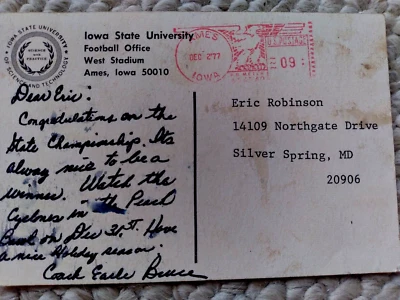 Iowa State University
Football Office
West Stadium
Ames, Iowa 50010
IOWA STATE UNIVERSITY
OF SCIENCE AND TECHNOLOGY
SCIENCE WITH PRACTICE
AMES
DEC 2'77
IOWA
U.S. POSTAGE
09
Dear Eric:
Congratulations on the
State Championship. Its
always nice to be a
winner. Watch the
Cyclones in the Peach
Bowl on Dec 31st. Have
a nice Holiday season.
Coach Earle Bruce
Eric Robinson
14109 Northgate Drive
Silver Spring, MD
20906